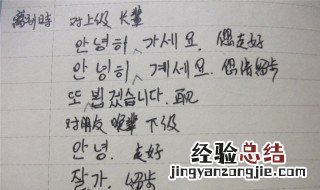 离别时 对上级 长辈
안녕히 가세요. 您走好
안녕히 계세요. 您请留步
또 뵙겠습니다. 再见
对朋友 晚辈 下级
안녕. 走好
잘가. 留步
经验总结
www.jingyanzongjie.com